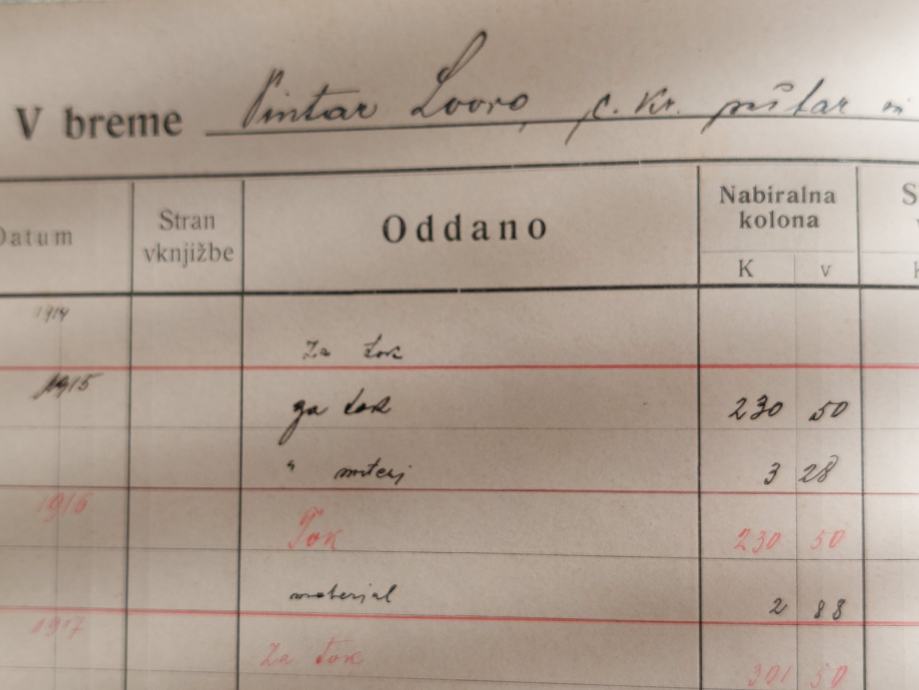 V breme Pintar Lovro, c. kr. puštar
Datum Stran vknjižbe Oddano Nabiralna kolona
K v
1914
Za tok
1915
za tok 230 50
" materj 3 28
1916
Tok 230 50
materjal 2 88
1917
Za tok 301 50